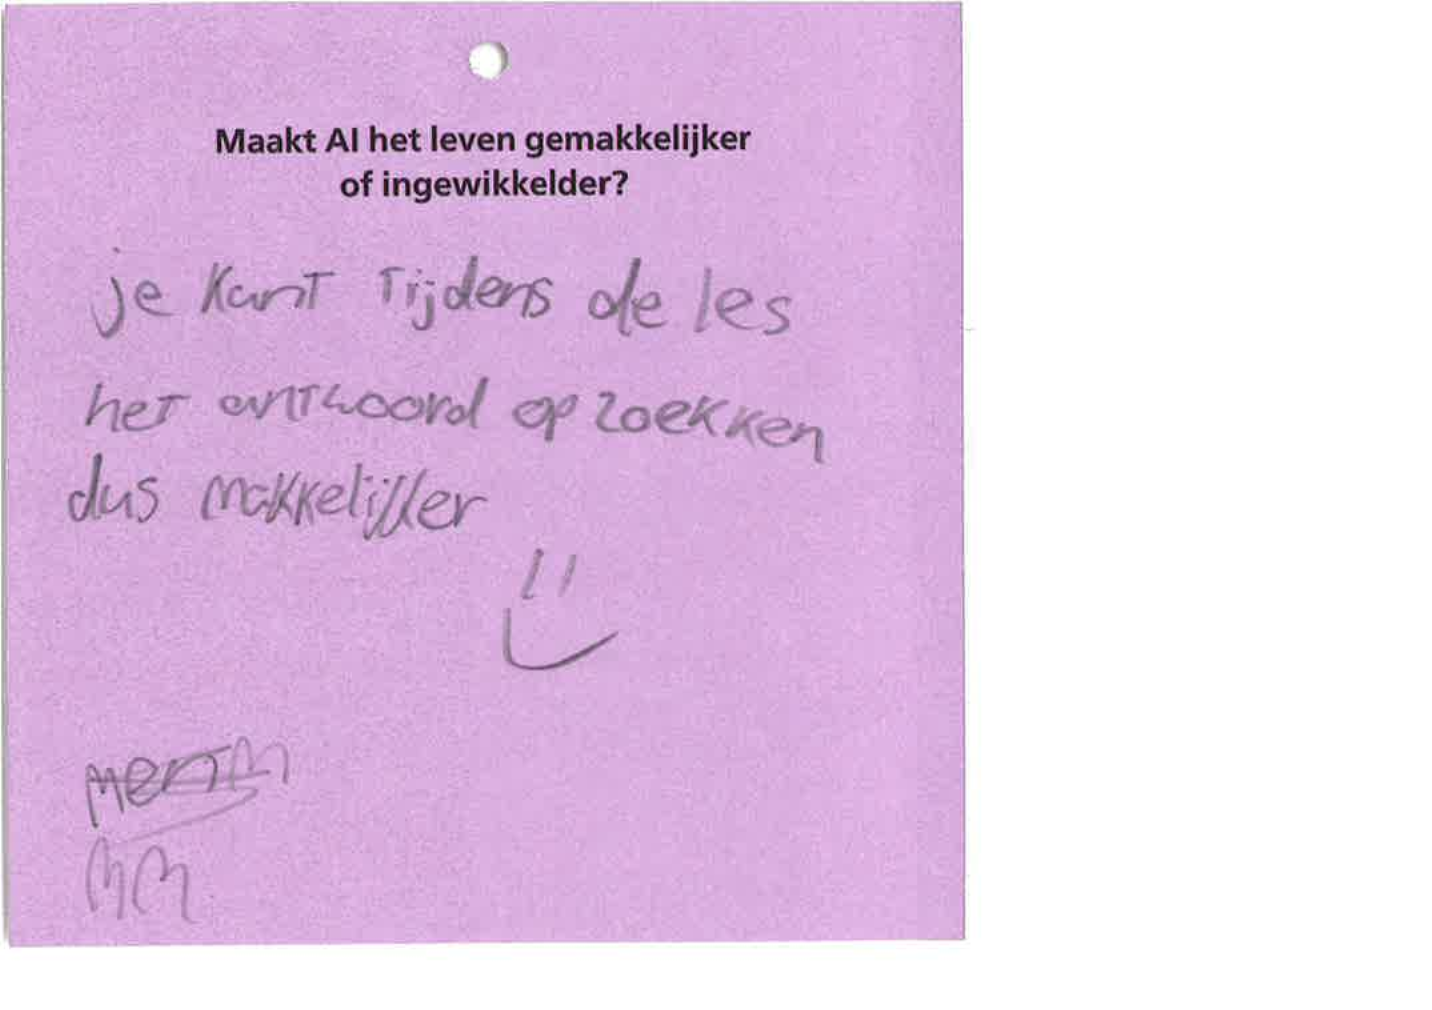 Maakt AI het leven gemakkelijker
of ingewikkelder?
je kant tijdens de les
het antwoord op zoekken
dus makkelijker
MM